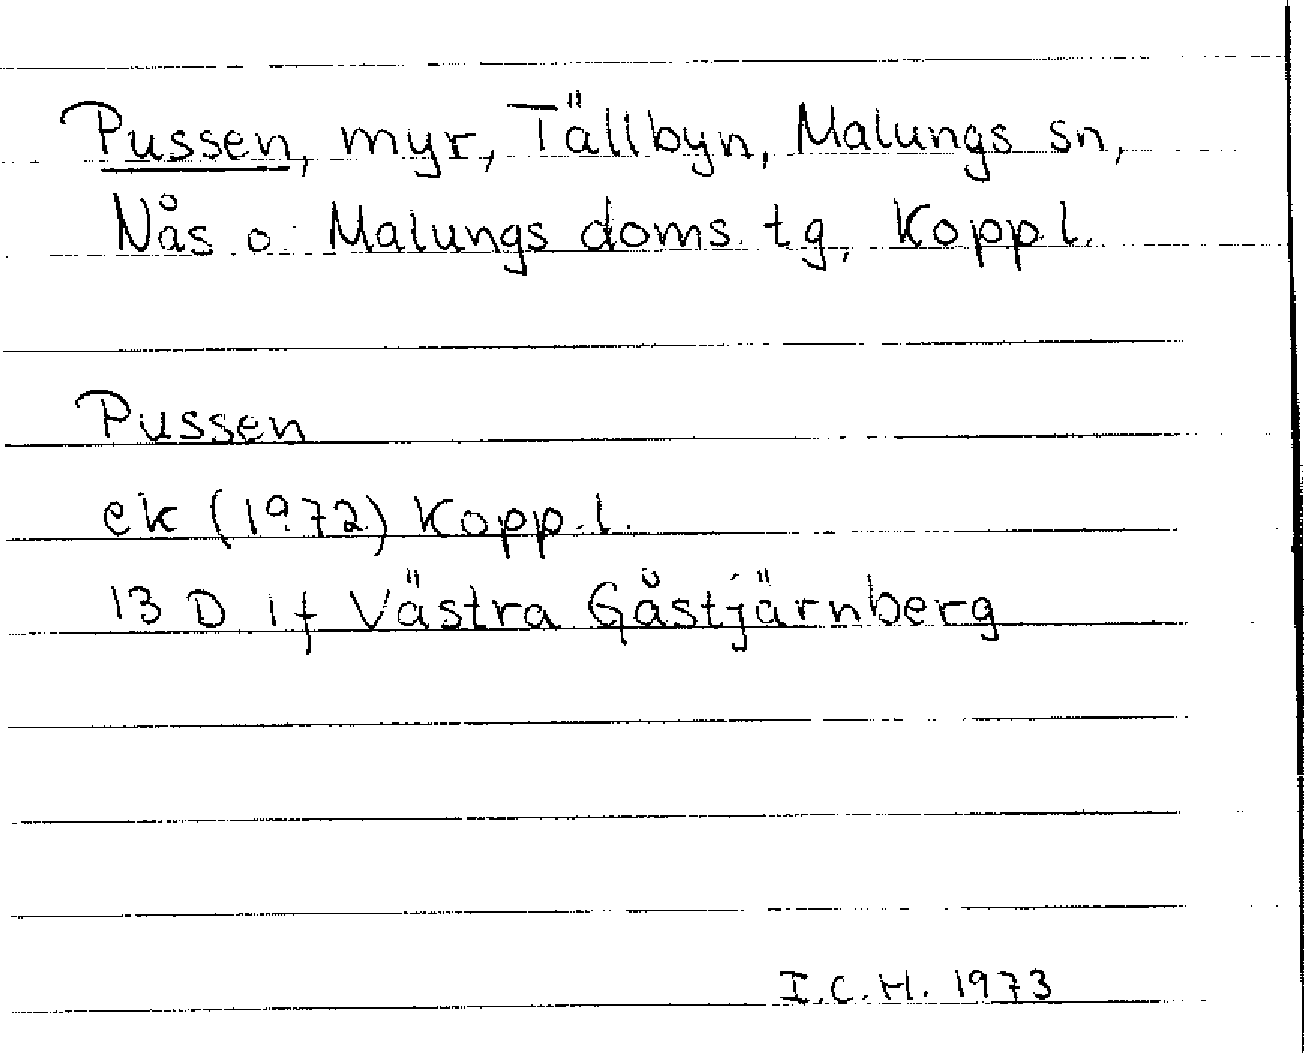 Pussen, myr, Tällbyn, Malungs sn,
Nås o. Malungs doms. tg, Kopp. l.
Pussen
ek (1972) Kopp. l.
13 D 1f Västra Gåstjärnberg
I.C.H. 1973